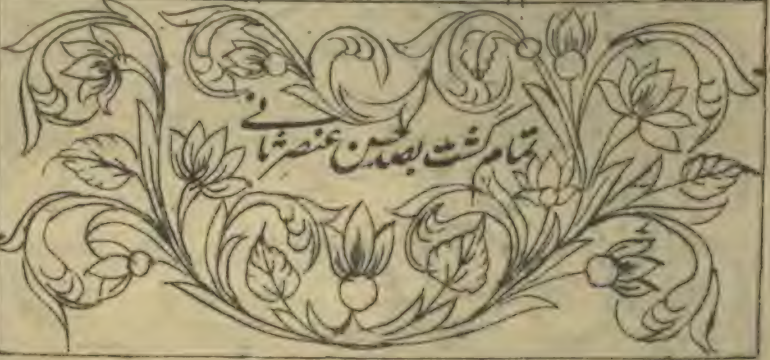 تمام گشت بصد حسن عنصر ثانی